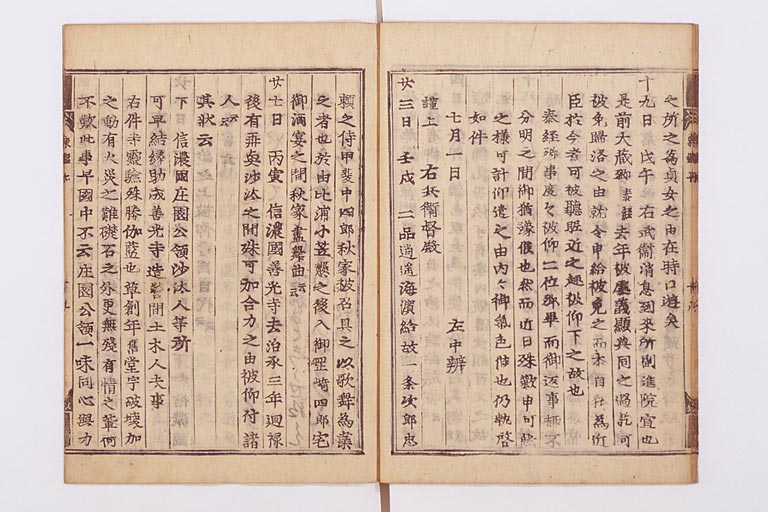 之所之為貞女之由在時口遊矣
十九日 戊午 右武衛消息到来所副進院宣也
是前大蔵卿泰経去年被處義顕與同之過訖可
被免歸洛之由就令申給被免之而本自在為近
臣於今者可被聽昵近之趣被仰下之故也
泰経殊事度々被仰二位 畢而御返事無
分明之間御猶豫候也然而近日殊歎申可
之様可計仰遣之由内々御氣色候也仍執啓
如件
七月一日 左中辨
謹上 右兵衛督殿
廿三日 壬戌 二品逍遥海濱給故一条次郎忠
頼之侍甲斐中四郎秋家被召具之以歌舞為藝
之者也於由比浦小笠懸之後入御岡崎四郎宅
御酒宴之間秋家盡舞曲云云
廿七日 丙寅 信濃國善光寺去治承三年廻禄
後有再興沙汰之間殊可加合力之由被仰付諸
人云云
其狀云
下 信濃國庄園公領沙汰人等所
可早結縁助成善光寺造營間土木人夫事
右件寺靈驗殊勝伽藍也草創年舊堂宇破壞加
之動有火災之難礎石之外更無殘有情之輩何
不歎此事早國中不云庄園公領一味同心與力